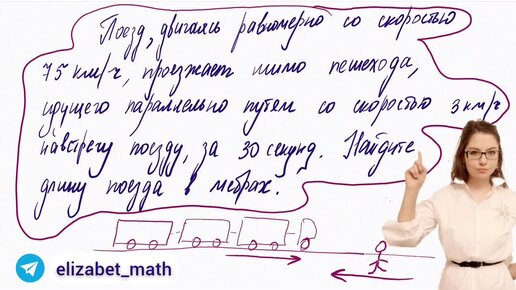 Поезд, двигаясь равномерно со скоростью
75 км/ч, проезжает мимо пешехода,
идущего параллельно путям со скоростью 3 км/ч
навстречу поезду, за 30 секунд. Найдите
длину поезда в метрах.
elizabet_math